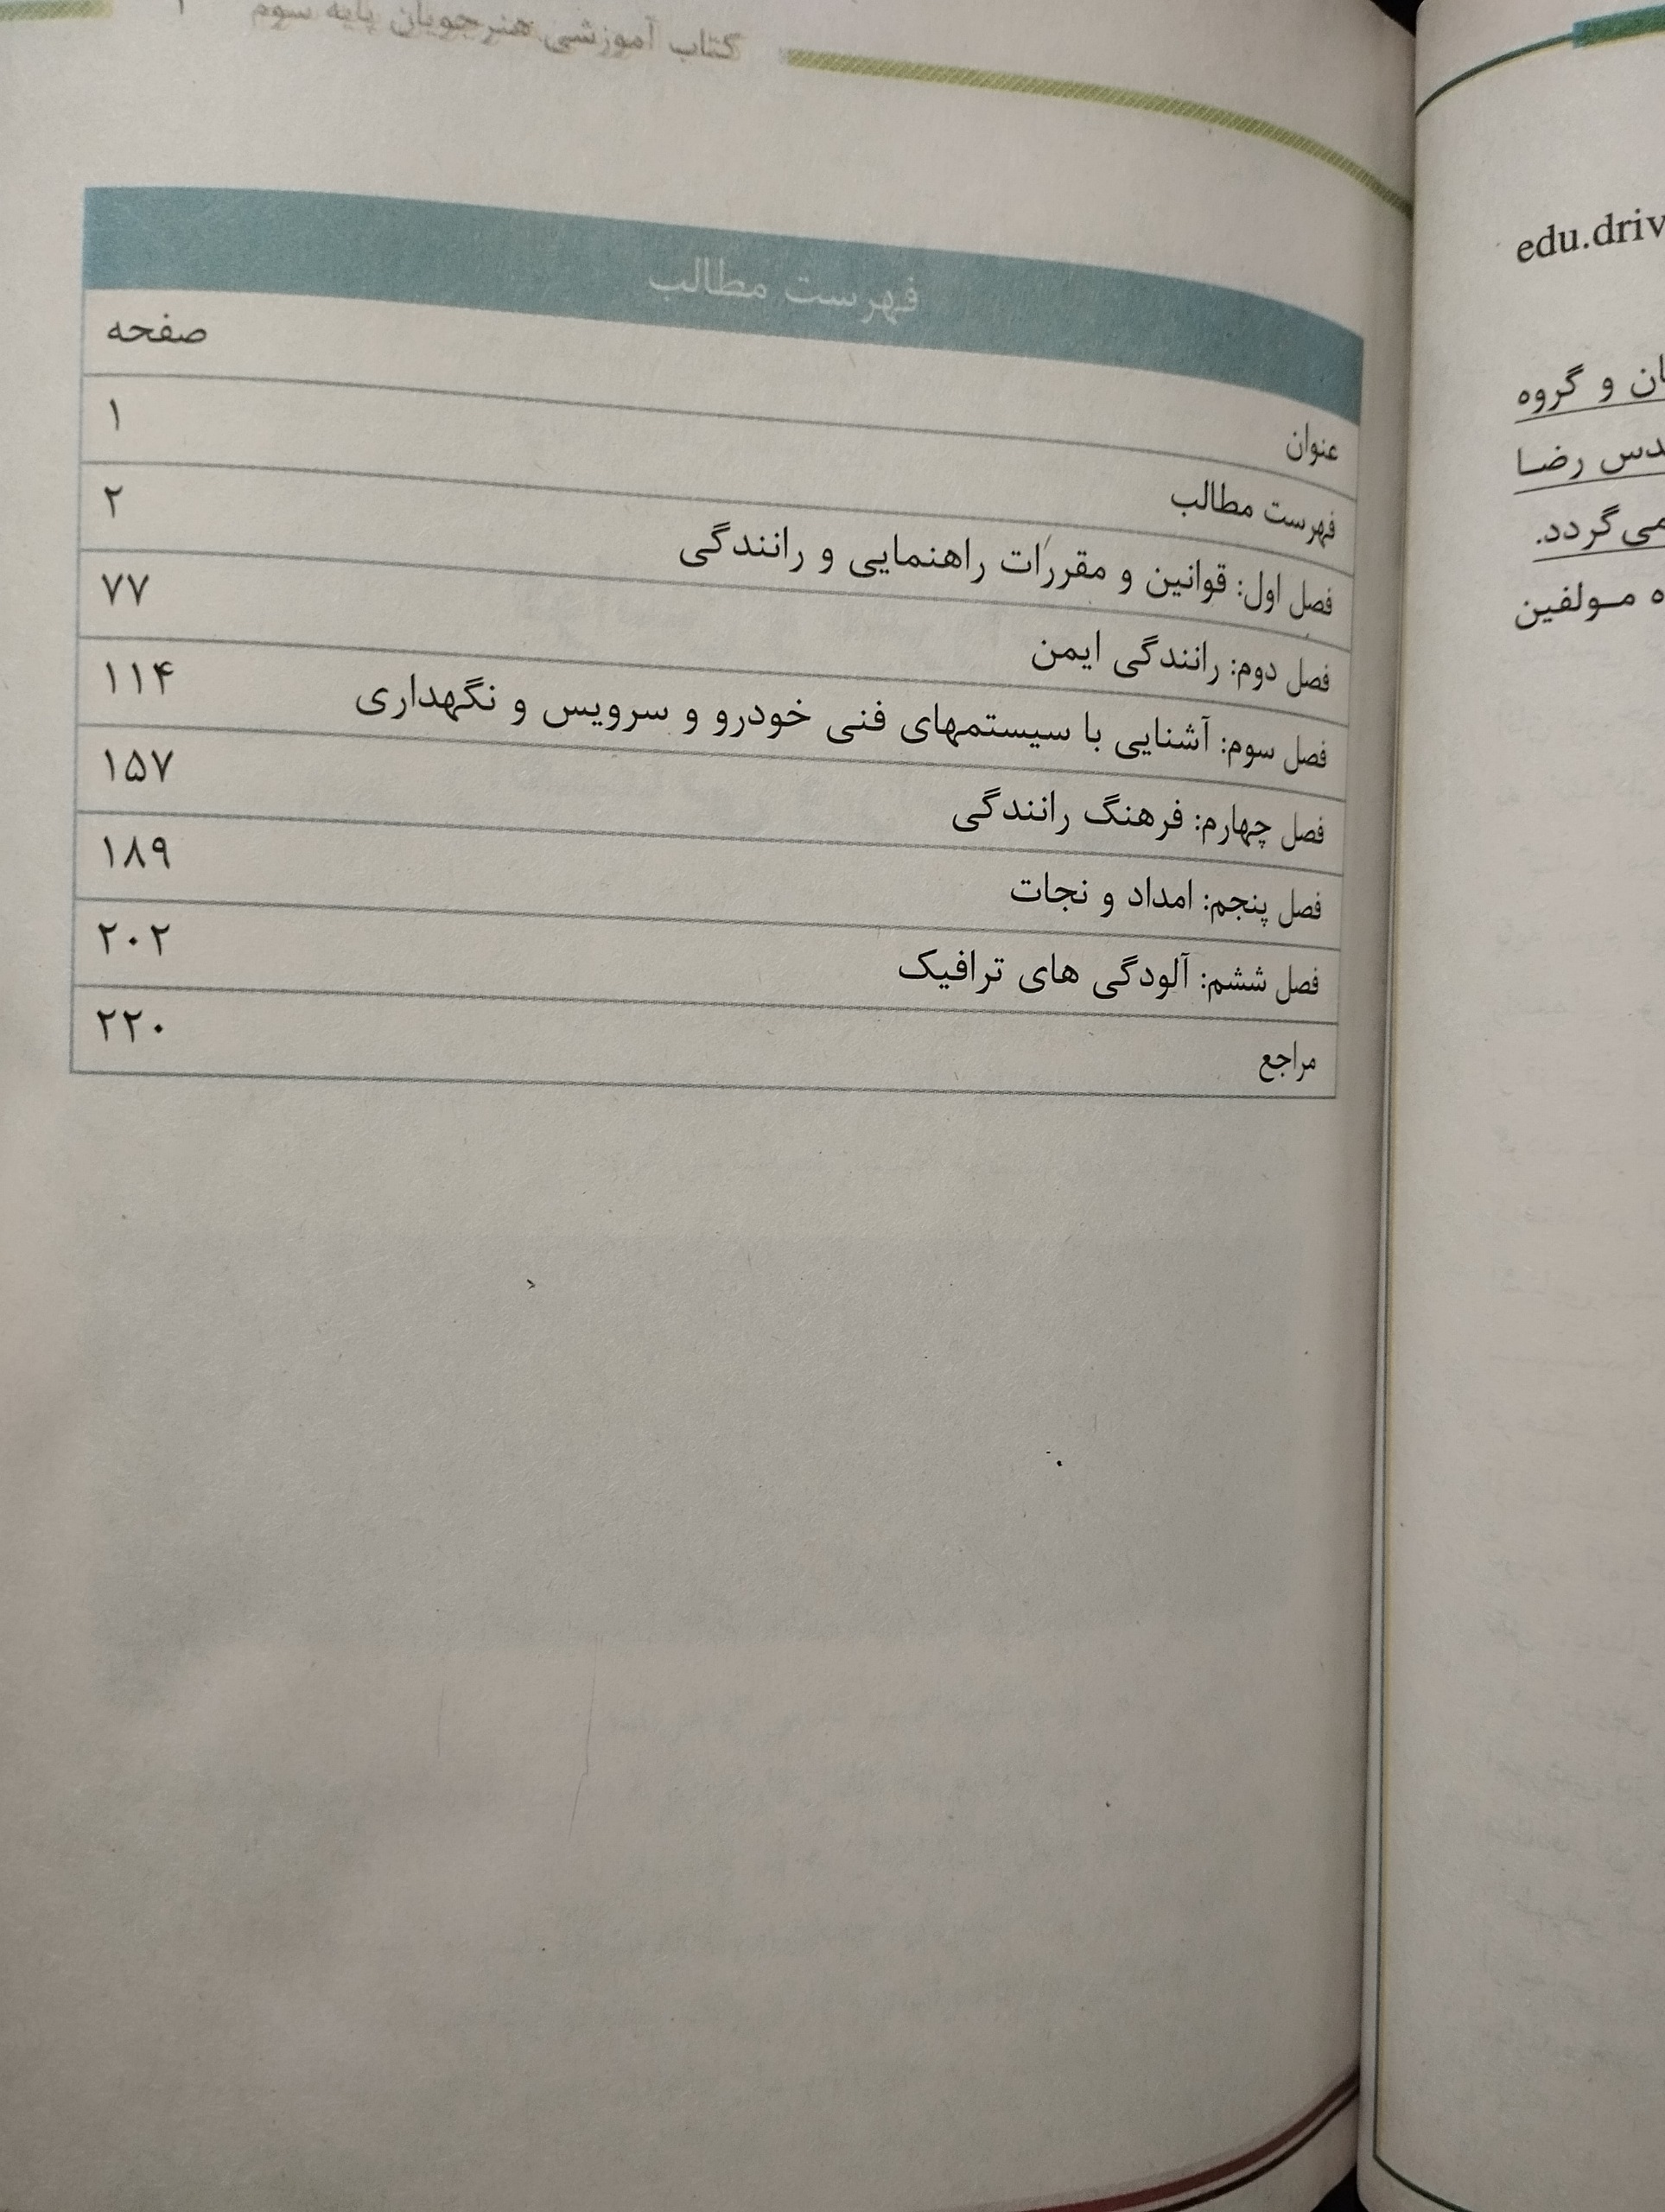 کتاب آموزشی هنرجویان پایه سوم ۱
فهرست مطالب
عنوان صفحه
فهرست مطالب ۱
فصل اول: قوانین و مقررات راهنمایی و رانندگی ۲
فصل دوم: رانندگی ایمن ۷۷
فصل سوم: آشنایی با سیستمهای فنی خودرو و سرویس و نگهداری ۱۱۴
فصل چهارم: فرهنگ رانندگی ۱۵۷
فصل پنجم: امداد و نجات ۱۸۹
فصل ششم: آلودگی های ترافیک ۲۰۲
مراجع ۲۲۰
edu.driv
و گروه
رضا
می‌گردد.
مولفین